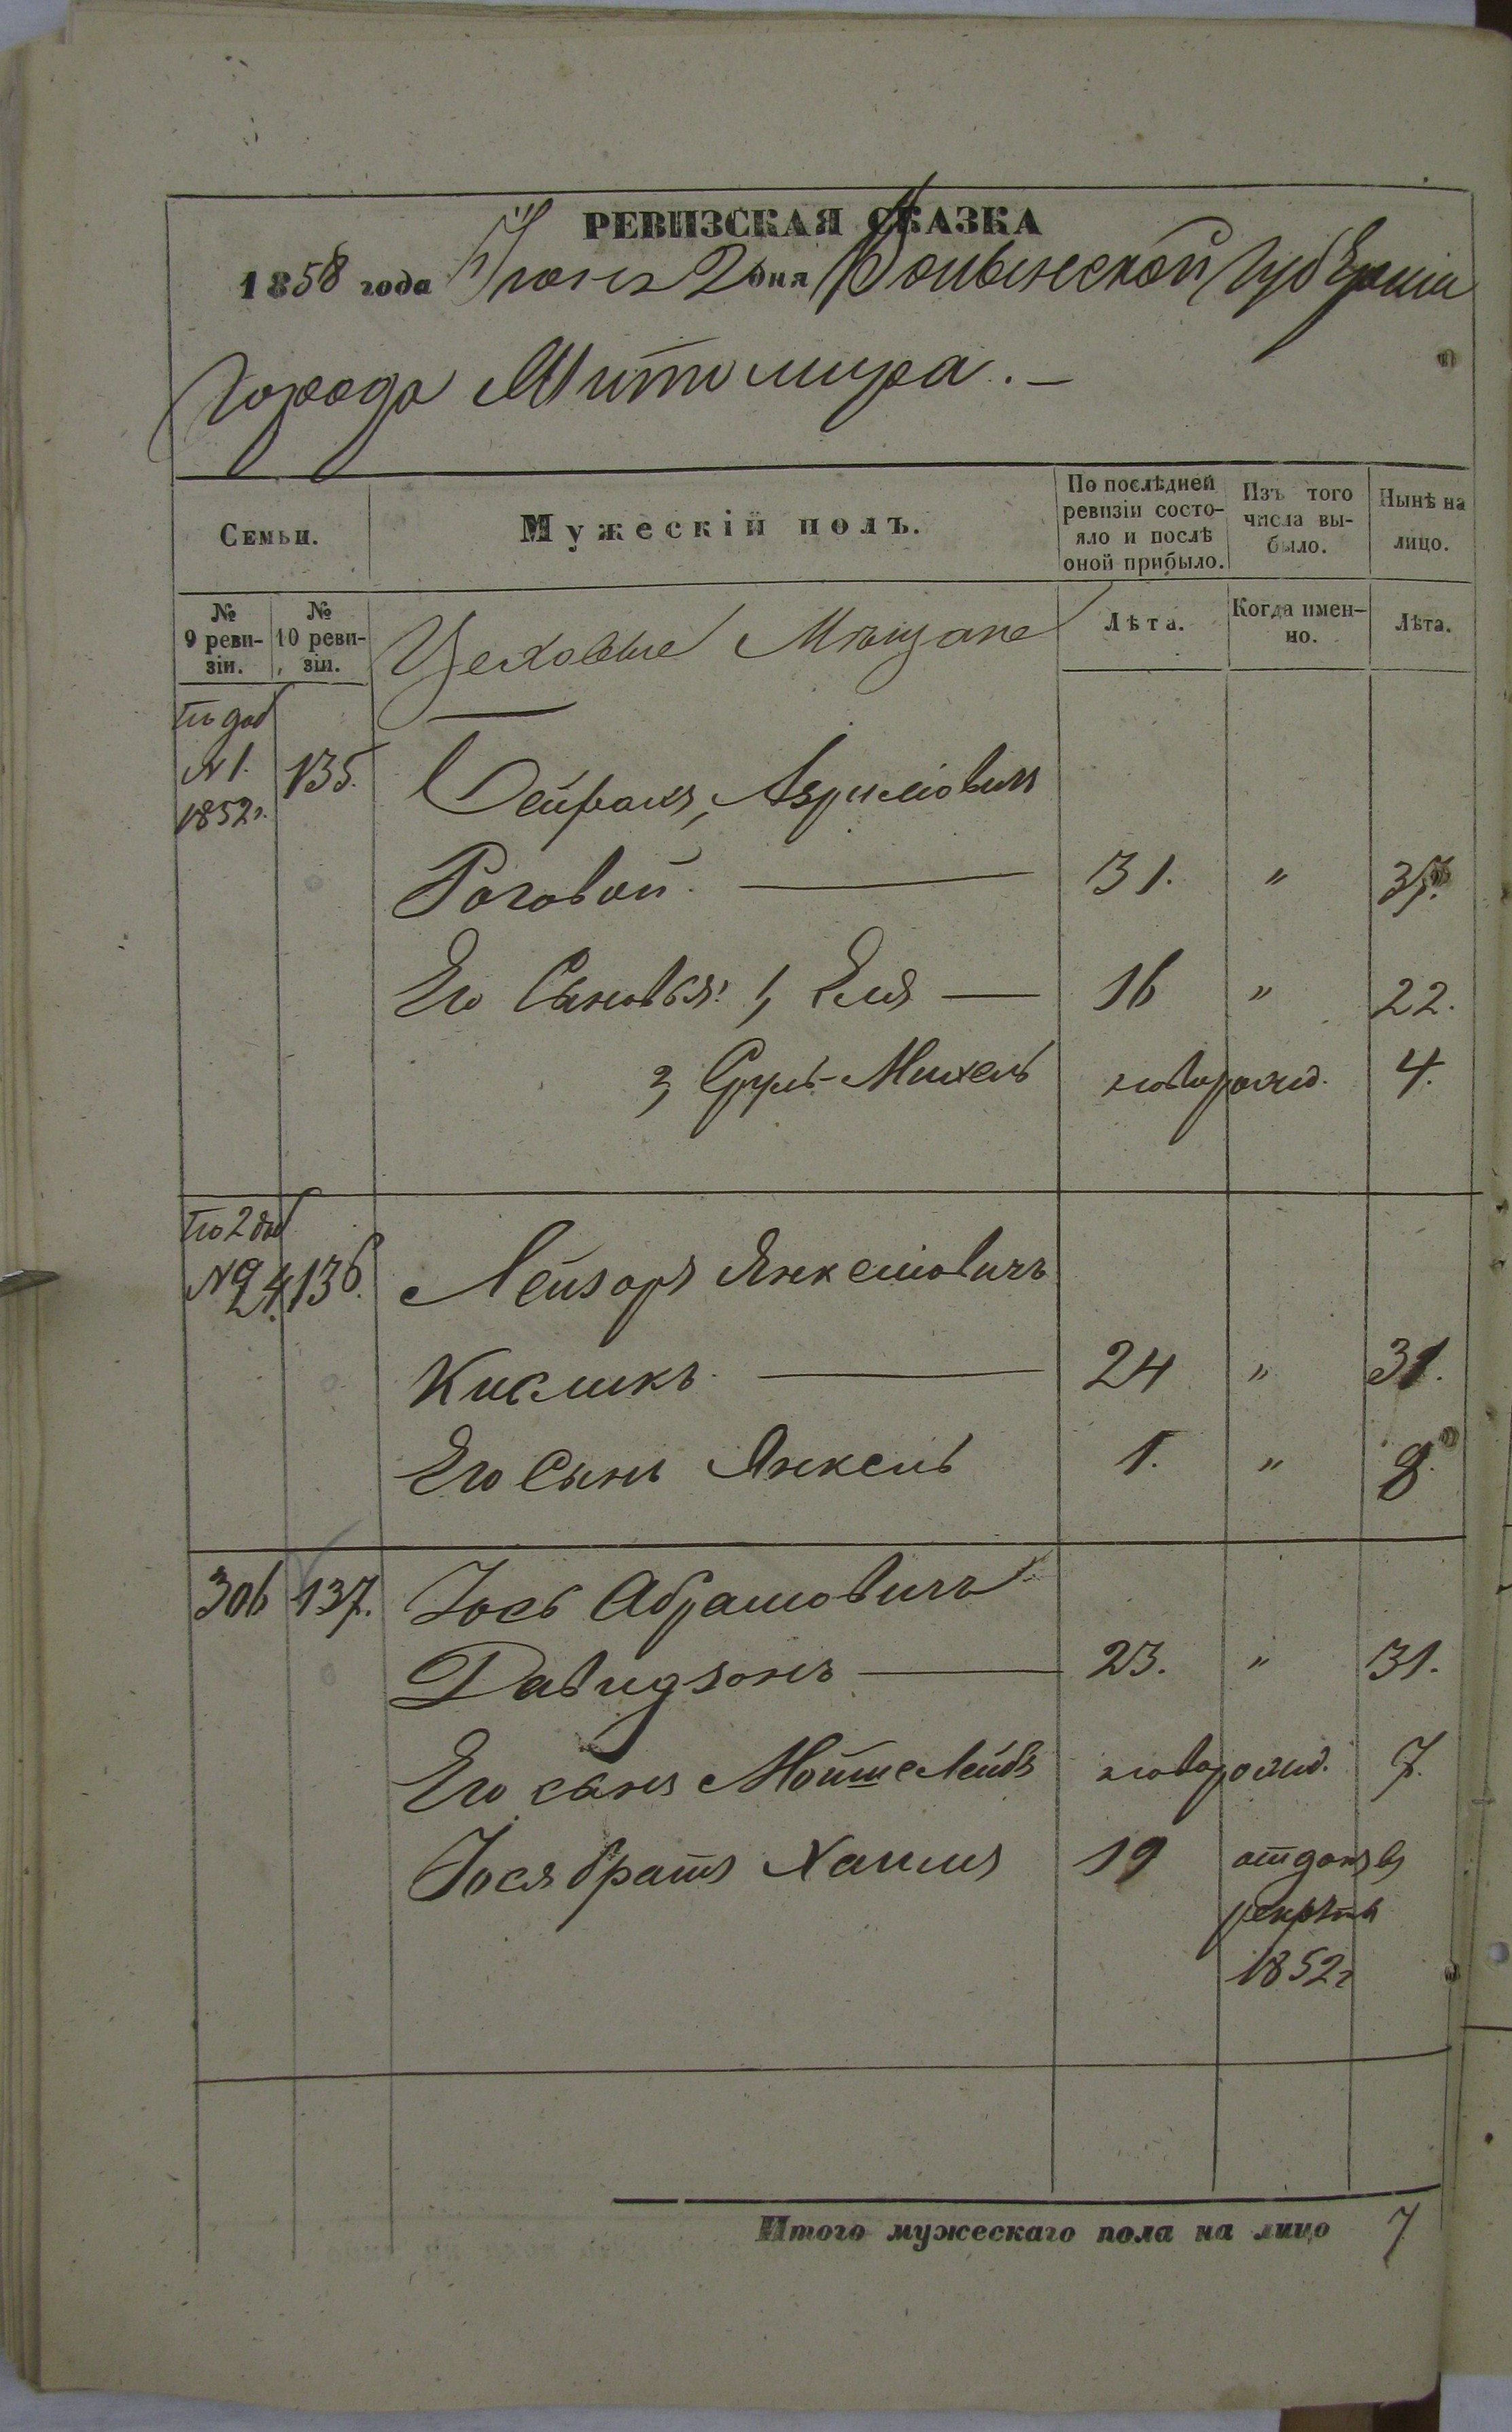 РЕВИЗСКАЯ СКАЗКА
1858 года Июня 2 дня Волынской Губерніи
Города Житомира.—
Семьи.
Мужескій полъ.
По послѣдней ревизіи состо-
яло и послѣ
оной прибыло.
Изъ того
числа вы-
было.
Нынѣ на
лицо.
№
9 реви-
зіи.
№
10 реви-
зіи.
Цеховые Мѣщане
Лѣта.
Когда имен-
но.
Лѣта.
По доб
№ 1.
1852г.
135.
Роговой. — 31. " 37.
Его Сыновья: 1, Еля — 16 " 22.
2, Сруль-Михель новорожд. 4.
По 2 доб
№ 24. 136. Лейзоръ Янкелiовичъ
Кисликъ. — 24 " 31.
Его Сынъ Янкель 1. " 8.
306 137. Іось Абрамовичъ
Давидзонъ — 23. " 31.
Его сынъ Мойше Лейбъ новорожд. 7.
Іося братъ Хаимъ 19 отданъ въ
рекруты
1852г
Итого мужескаго пола на лицо 7